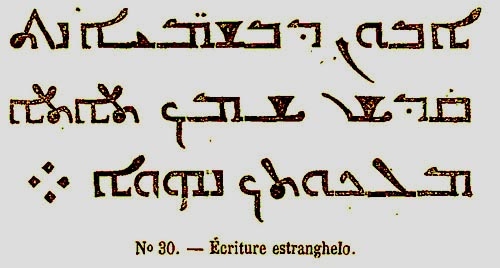 ܐܒܘܢ ܕܒܫܡ̈ܝܐ ܢܬ
ܩܕܫ ܫܡܟ ܬܐܬܐ
ܡܠܟܘܬܟ ܢܗܘܐ ܀
Nº 30. — Écriture estranghelo.